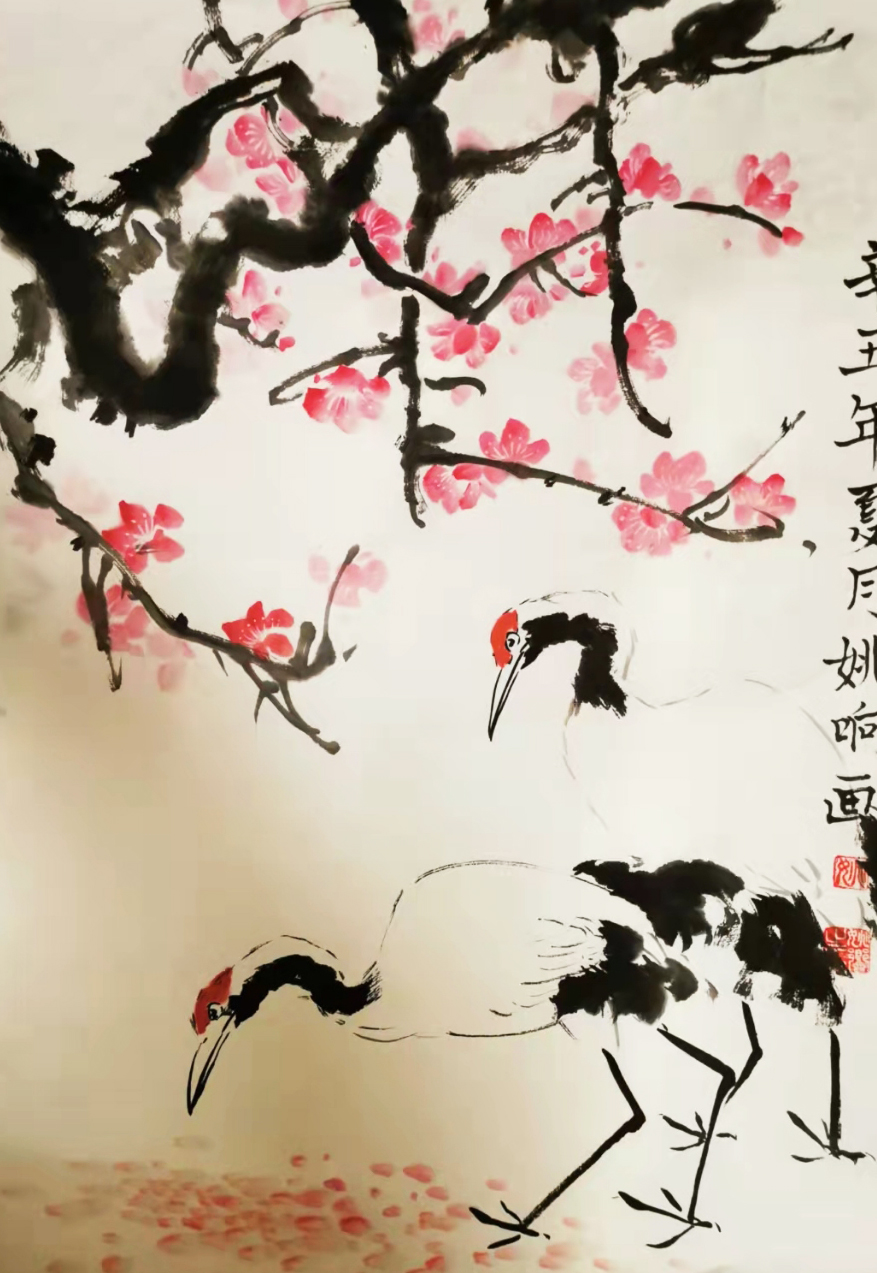 辛丑年夏月姚响画